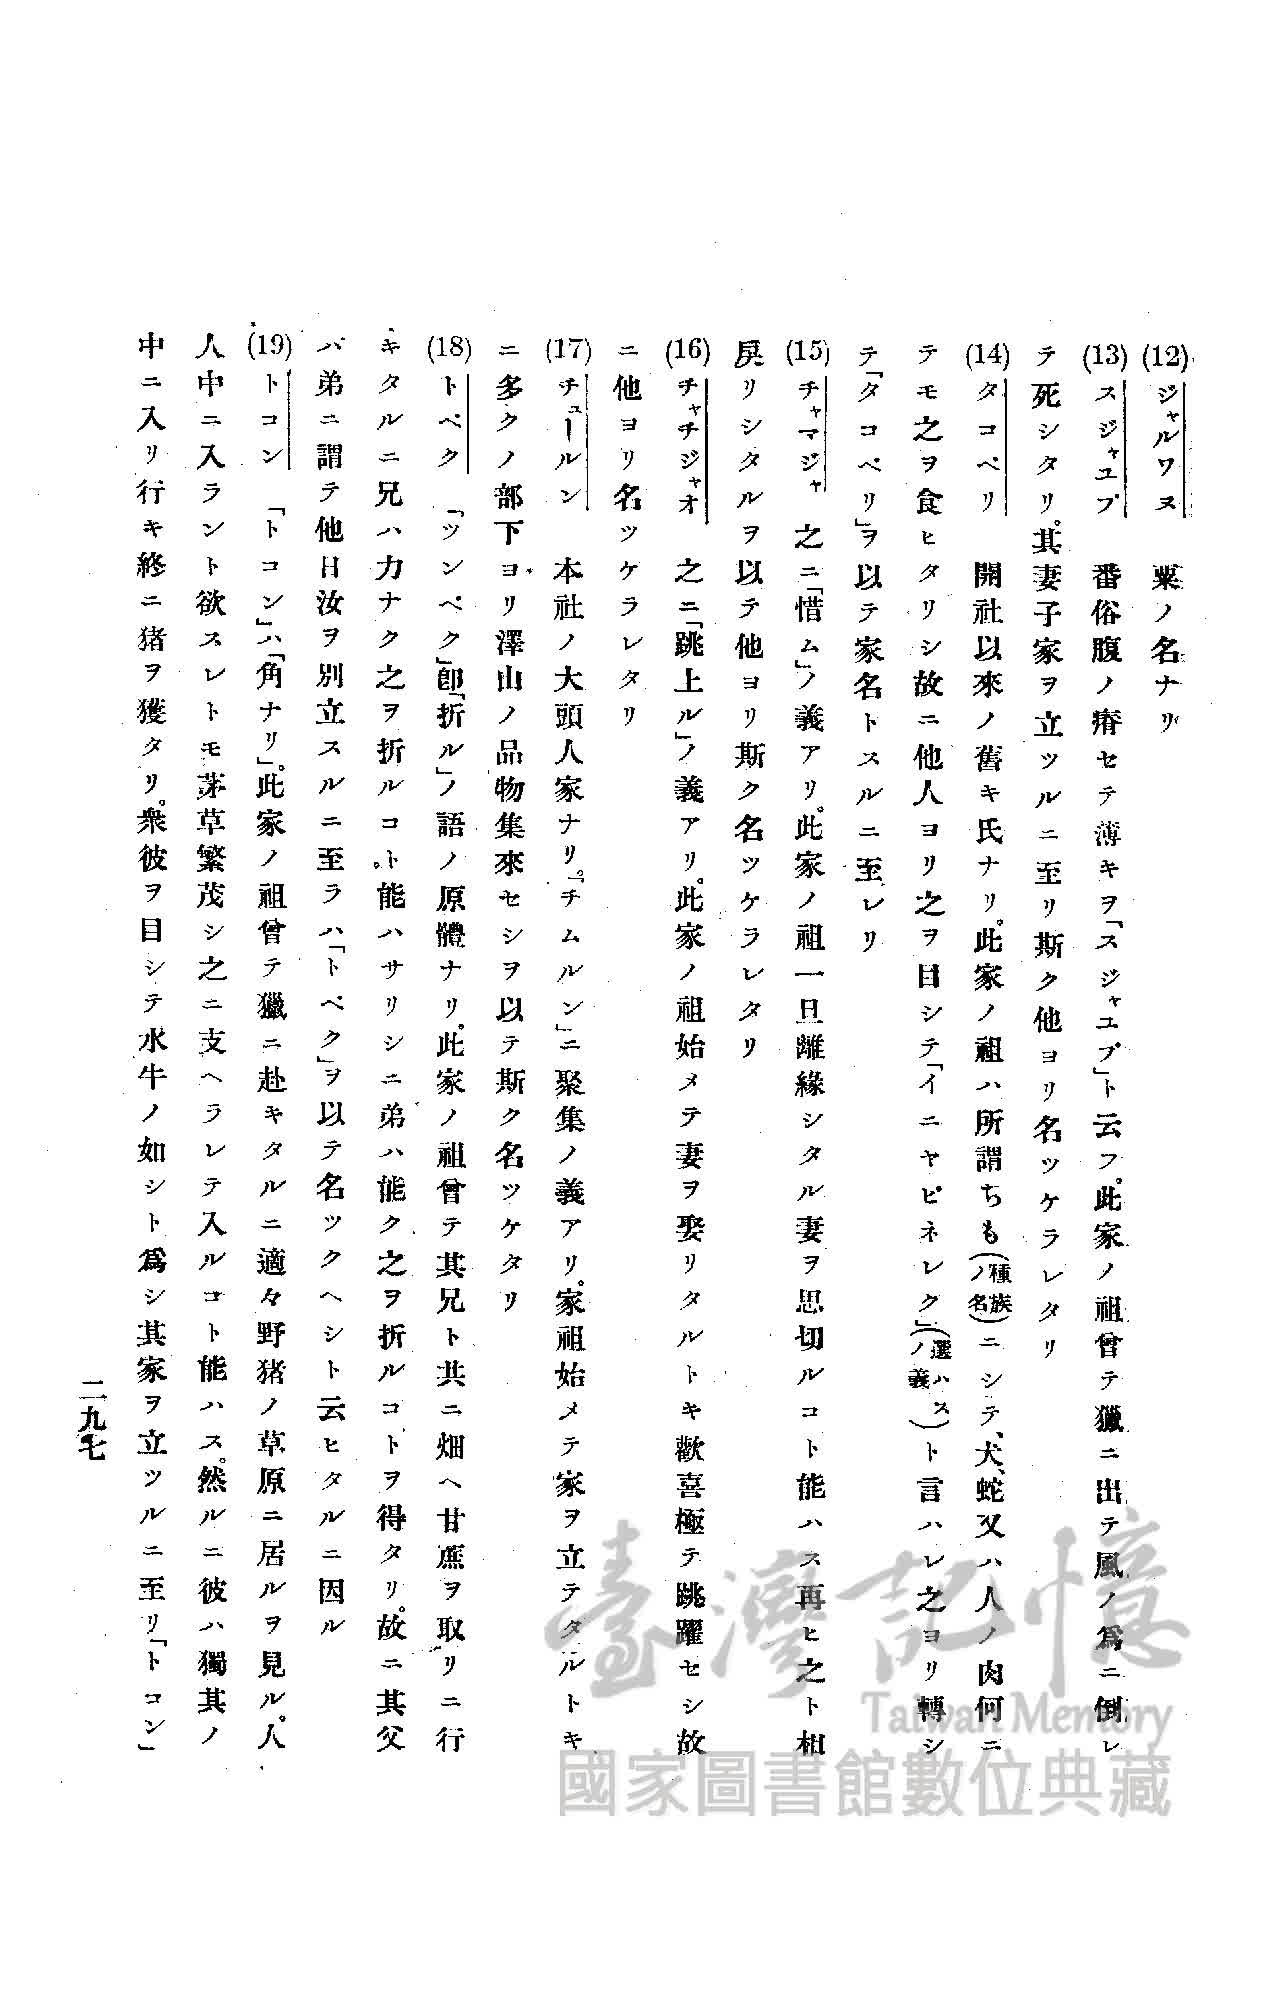 (12) ジャルワヌ 粟ノ名ナリ
(13) スジャユプ 番俗腹ノ瘠セテ薄キヲ「スジャユプ」ト云フ。此家ノ祖曾テ獵ニ出テ風ノ爲ニ倒レ
テ死シタリ。其妻子家ヲ立ツルニ至リ斯ク他ヨリ名ツケラレタリ
(14) タコベリ 開社以來ノ舊キ氏ナリ。此家ノ祖ハ所謂ちも(種族ノ名)ニシテ、犬、蛇又ハ人ノ肉何ニ
テモ之ヲ食ヒタリシ故ニ他人ヨリ之ヲ目シテ「イニヤピネレク」(選ハスノ義)ト言ハレ之ヨリ轉シ
テ「タコベリ」ヲ以テ家名トスルニ至レリ
(15) チャマジャ 之ニ「惜ム」ノ義アリ。此家ノ祖一旦離緣シタル妻ヲ思切ルコト能ハス再ヒ之ト相
戾リシタルヲ以テ他ヨリ斯ク名ツケラレタリ
(16) チャチジャオ 之ニ「跳上ル」ノ義アリ。此家ノ祖始メテ妻ヲ娶リタルトキ歡喜極テ跳躍セシ故
ニ他ヨリ名ツケラレタリ
(17) チュールン 本社ノ大頭人家ナリ。「チムルン」ニ聚集ノ義アリ。家祖始メテ家ヲ立テタルトキ
ニ多クノ部下ヨリ澤山ノ品物集來セシヲ以テ斯ク名ツケタリ
(18) トベク 「ツンベク」卽「折ル」ノ語ノ原體ナリ。此家ノ祖曾テ其兄ト共ニ畑ヘ甘蔗ヲ取リニ行
キタルニ兄ハ力ナク之ヲ折ルコト能ハサリシニ弟ハ能ク之ヲ折ルコトヲ得タリ。故ニ其父
バ弟ニ謂テ他日汝ヲ別立スルニ至ラハ「トベク」ヲ以テ名ツクヘシト云ヒタルニ因ル
(19) トコン 「トコン」ハ「角ナリ」。此家ノ祖曾テ獵ニ赴キタルニ適々野猪ノ草原ニ居ルヲ見ル。人
人中ニ入ラント欲スレトモ茅草繁茂シ之ニ支ヘラレテ入ルコト能ハス。然ルニ彼ハ獨其ノ
中ニ入リ行キ終ニ猪ヲ獲タリ。衆彼ヲ目シテ水牛ノ如シト爲シ其家ヲ立ツルニ至リ「トコン」
二九七
臺灣記憶
Taiwan Memory
國家圖書館數位典藏